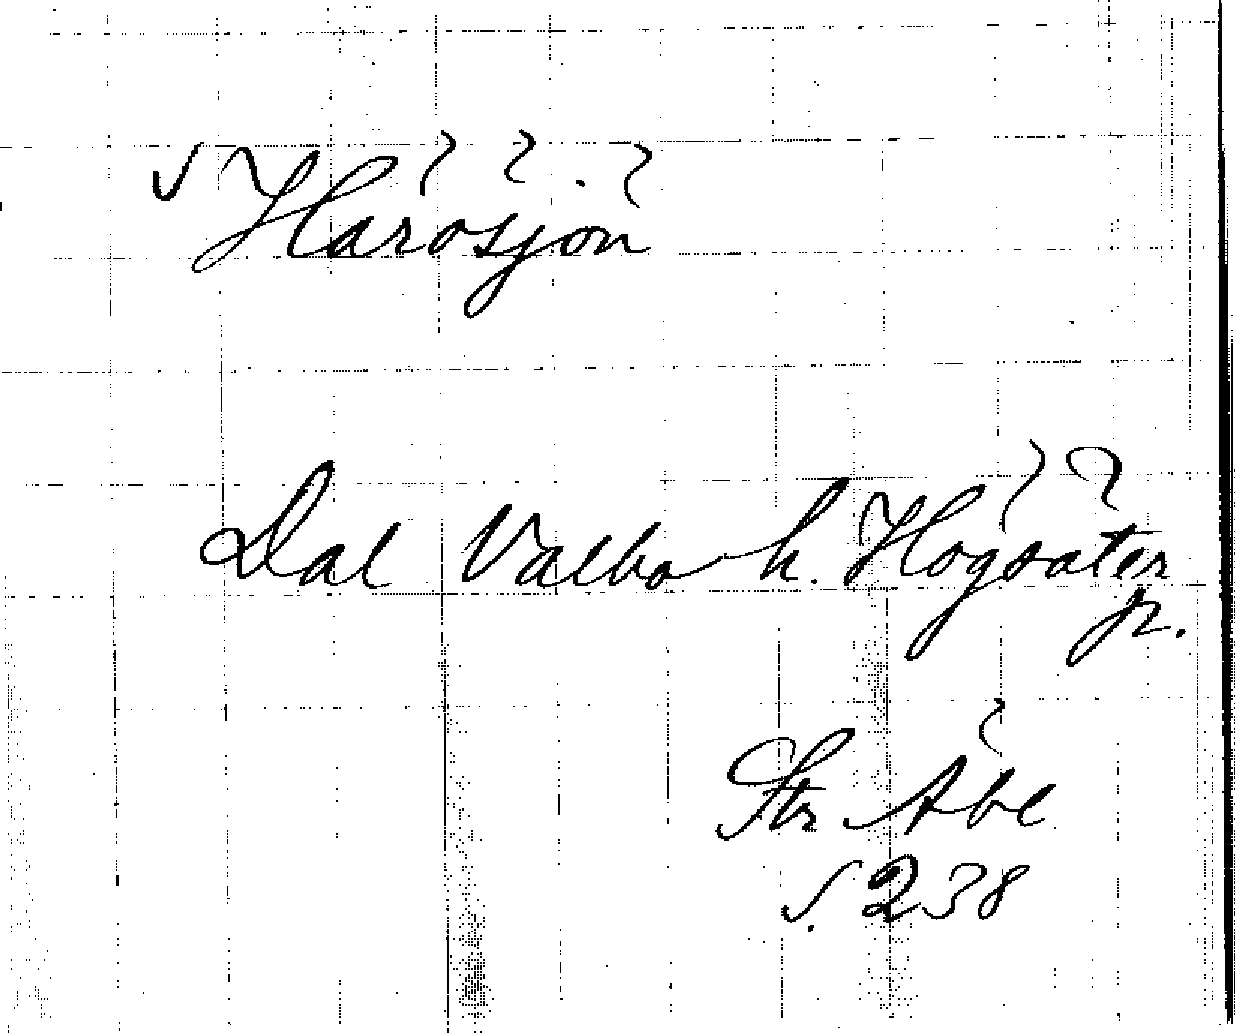 √ Härösjön
Dal Valbo h. Högsäter
p.
Str Åbe
s. 238